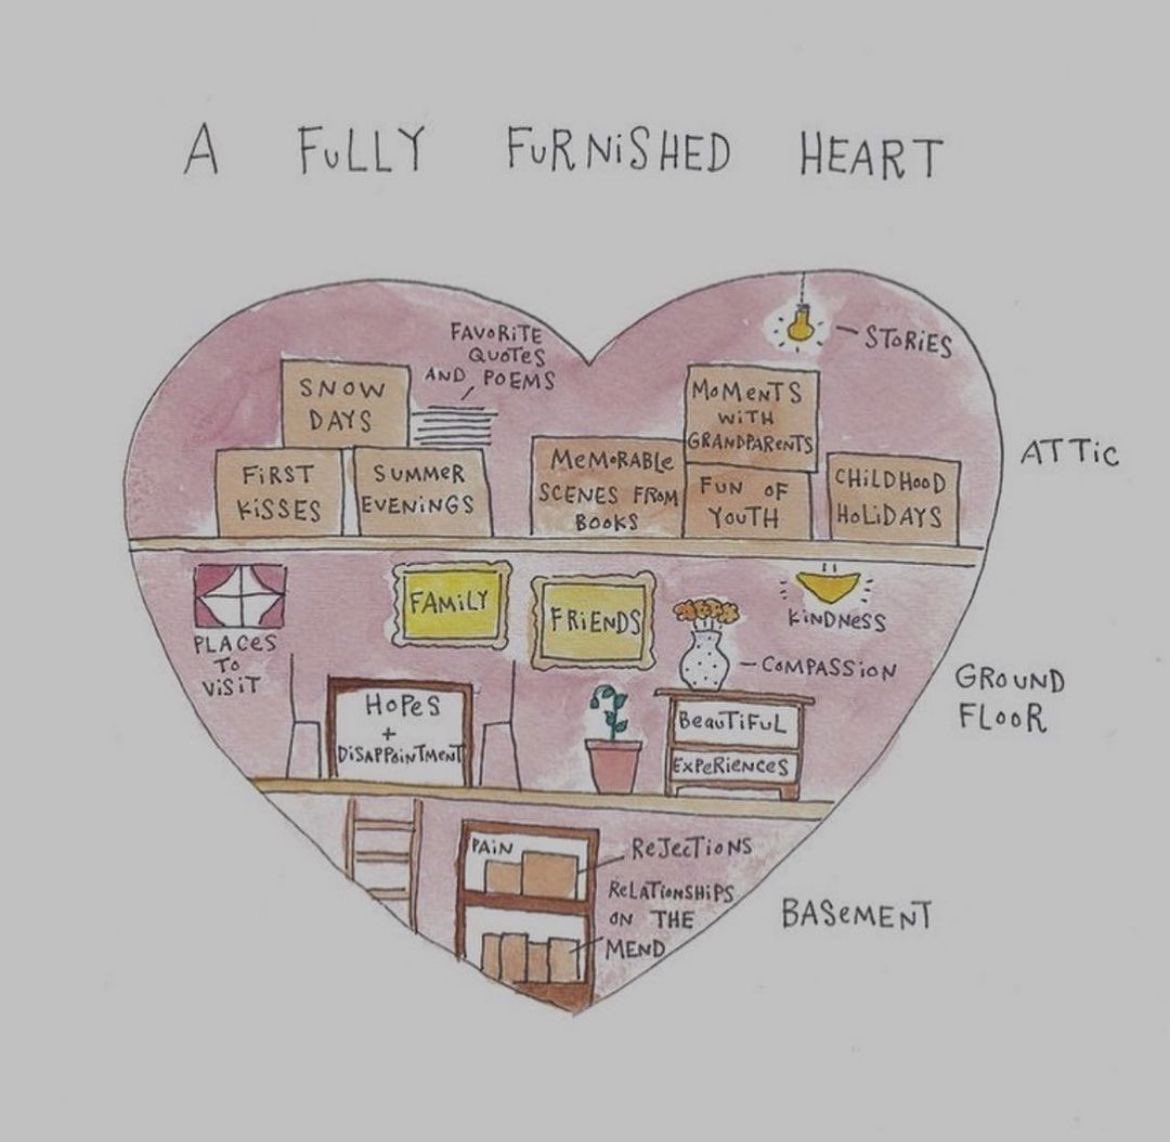 A FULLY FURNISHED HEART
FAVORITE
QUOTES
AND POEMS
STORIES
SNOW
DAYS
FIRST
KISSES
SUMMER
EVENINGS
MEMORABLE
SCENES FROM
BOOKS
MOMENTS
WITH
GRANDPARENTS
FUN OF
YOUTH
CHILDHOOD
HOLIDAYS
ATTIC
PLACES
TO
VISIT
FAMILY
FRIENDS
KINDNESS
COMPASSION
HOPES
+
DISAPPOINTMENT
BEAUTIFUL
EXPERIENCES
GROUND
FLOOR
PAIN
REJECTIONS
RELATIONSHIPS
ON THE
MEND
BASEMENT